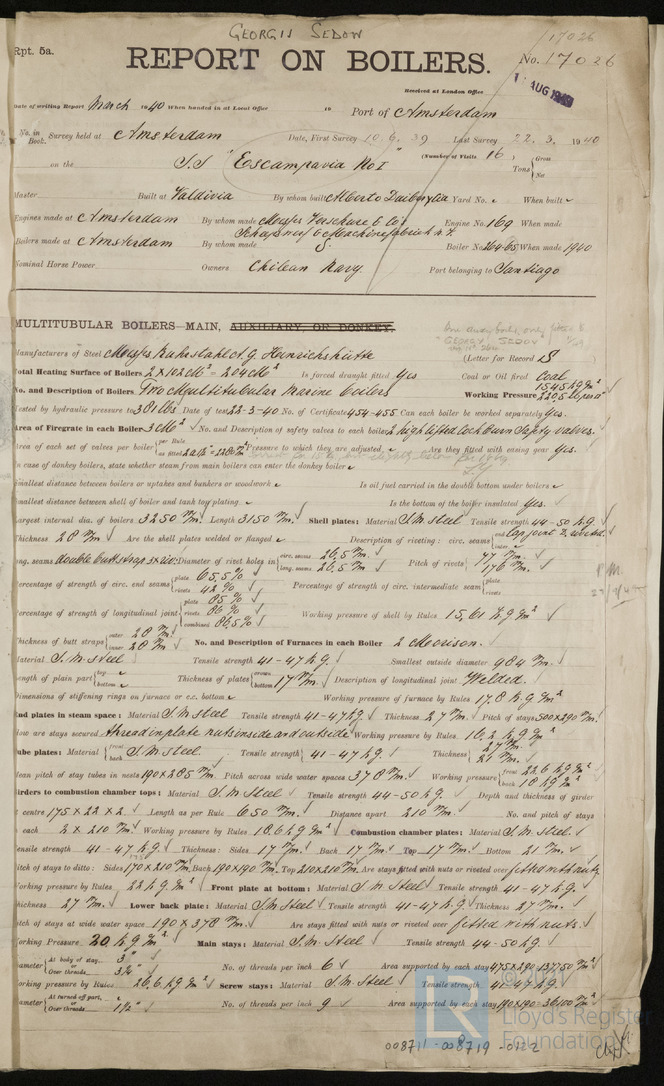 GEORGIJ SEDOW
17026
Rpt. 5a.
REPORT ON BOILERS.
No. 17026
Received at London Office
AUG
Date of writing Report March 1940 When handed in at Local Office 19 Port of Amsterdam
No. in Book. Survey held at Amsterdam Date, First Survey 10.6.39 Last Survey 22.3.1940
on the S.S "Escampavia No I" (Number of Visits 16) Tons Gross Net
Master Built at Valdivia By whom built Alberto Yard No. When built
Engines made at Amsterdam By whom made Messrs Verschure & Co's Engine No. 169 When made
Scheepswerf & Machinefabriek N.V.
Boilers made at Amsterdam By whom made Boiler No. 264-65 When made 1940
Nominal Horse Power Owners Chilean Navy. Port belonging to Santiago
MULTITUBULAR BOILERS—MAIN, AUXILIARY, OR DONKEY.
Manufacturers of Steel Messrs Ruhrstahl A.G. Heinrichshütte (Letter for Record S)
Total Heating Surface of Boilers 2 x 102 M² = 204 M² Is forced draught fitted Yes Coal or Oil fired Coal
No. and Description of Boilers Two Multitubular marine boilers Working Pressure
Tested by hydraulic pressure to Date of test 22-3-40 No. of Certificate 454-455 Can each boiler be worked separately Yes.
Area of Firegrate in each Boiler 3 M² No. and Description of safety valves to each boiler 2 high lifted Cockburn Safety valves.
Area of each set of valves per boiler per Rule as fitted Pressure to which they are adjusted Are they fitted with easing gear Yes.
In case of donkey boilers, state whether steam from main boilers can enter the donkey boiler
Smallest distance between boilers or uptakes and bunkers or woodwork Is oil fuel carried in the double bottom under boilers
Smallest distance between shell of boiler and tank top plating Is the bottom of the boiler insulated Yes.
Largest internal dia. of boilers 3250 m/m. Length 3150 m/m. Shell plates: Material S.M. Steel Tensile strength 44-50 kg.
Thickness 28 m/m. Are the shell plates welded or flanged Description of riveting: circ. seams end Lap joint inter
long. seams double butt strap Diameter of rivet holes in circ. seams 26,5 m/m. long. seams 26,5 m/m. Pitch of rivets 77 m/m. 176 m/m.
Percentage of strength of circ. end seams plate 65,5 % rivets 42 % Percentage of strength of circ. intermediate seam plate rivets
Percentage of strength of longitudinal joint plate 85 % rivets 86 % combined 86,5 % Working pressure of shell by Rules 15,61 kg m²
Thickness of butt straps outer 28 m/m. inner 28 m/m. No. and Description of Furnaces in each Boiler 2 Morison.
Material S.M. Steel Tensile strength 41-47 kg. Smallest outside diameter 984 m/m.
Length of plain part top bottom Thickness of plates crown bottom 17 m/m. Description of longitudinal joint Welded.
Dimensions of stiffening rings on furnace or c.c. bottom Working pressure of furnace by Rules 17.8 kg m²
End plates in steam space: Material S.M. Steel Tensile strength 41-47 kg. Thickness 27 m/m. Pitch of stays 500x290 m/m.
How are stays secured thread in plate nuts inside and outside Working pressure by Rules 16,2 kg m²
Tube plates: Material front back S.M. Steel. Tensile strength 41-47 kg. Thickness 27 m/m. 21 m/m.
Mean pitch of stay tubes in nests 190 x 285 m/m. Pitch across wide water spaces 378 m/m. Working pressure front 22.6 kg m² back 18 kg m²
Girders to combustion chamber tops: Material S.M. Steel Tensile strength 44-50 kg. Depth and thickness of girder
centre 175 x 22 x 2 Length as per Rule 650 m/m. Distance apart 210 m/m. No. and pitch of stays
each 2 x 210 m/m. Working pressure by Rules 18.6 kg m² Combustion chamber plates: Material S.M. Steel.
Tensile strength 41-47 kg. Thickness: Sides 17 m/m. Back 17 m/m. Top 17 m/m. Bottom 21 m/m.
Pitch of stays to ditto: Sides 170 x 210 m/m. Back 190x190 m/m. Top 210x210 m/m. Are stays fitted with nuts or riveted over fitted with nuts
Working pressure by Rules 22 kg m² Front plate at bottom: Material S.M. Steel Tensile strength 41-47 kg.
Thickness 27 m/m. Lower back plate: Material S.M. Steel Tensile strength 41-47 kg. Thickness 27 m/m.
Pitch of stays at wide water space 190 x 378 m/m. Are stays fitted with nuts or riveted over fitted with nuts.
Working Pressure 20 kg m² Main stays: Material S.M. Steel Tensile strength 44-50 kg.
Diameter At body of stay, 3" or Over threads 3¼" No. of threads per inch 6 Area supported by each stay 475x290=137750 m/m²
Working pressure by Rules 26.6 kg m² Screw stays: Material S.M. Steel Tensile strength 41-47 kg.
Diameter At turned off part, or Over threads 1½" No. of threads per inch 9 Area supported by each stay 190x190=36100 m/m²
Lloyd's Register
Foundation
008711-008719-0122